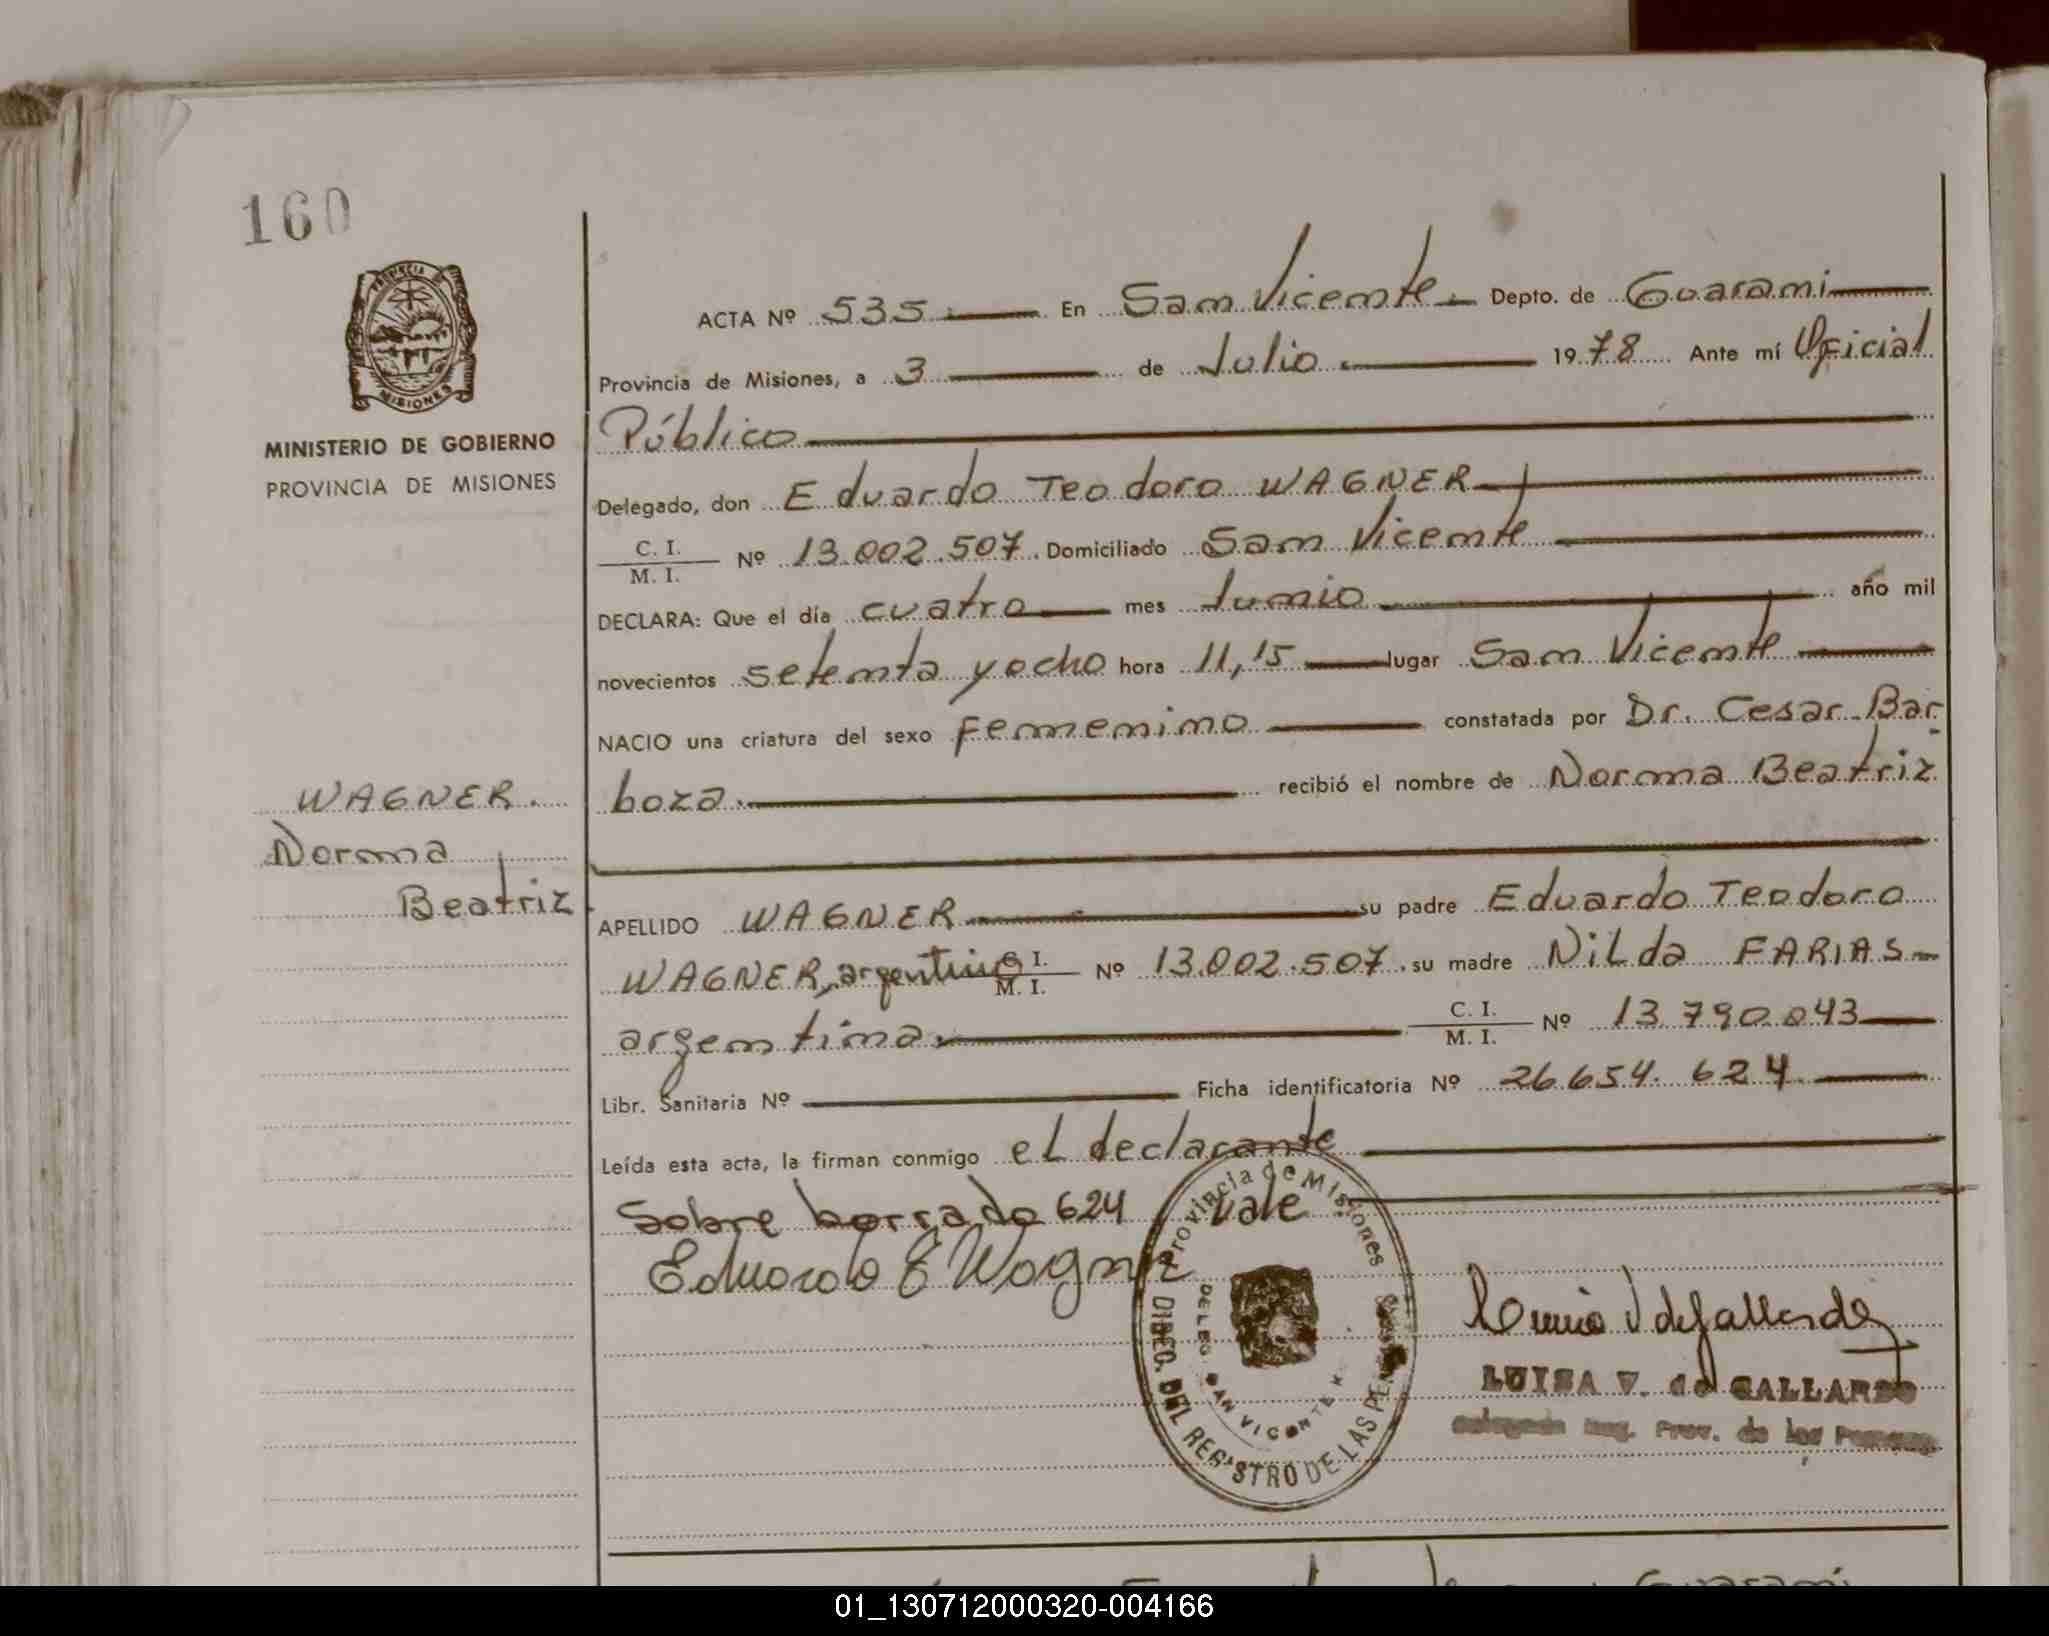 160
PROVINCIA DE
MISIONES
MINISTERIO DE GOBIERNO
PROVINCIA DE MISIONES
ACTA Nº 535 En San Vicente Depto. de Guarani
Provincia de Misiones, a 3 de Julio 1978 Ante mí Oficial
Público
Delegado, don Eduardo Teodoro WAGNER
C. I.
M. I. Nº 13.002.507. Domiciliado San Vicente
DECLARA: Que el día cuatro mes Junio año mil
novecientos setenta y ocho hora 11,15 lugar San Vicente
NACIO una criatura del sexo femenino constatada por Dr. Cesar Bar-
boza. recibió el nombre de Norma Beatriz
WAGNER.
Norma
Beatriz
APELLIDO WAGNER su padre Eduardo Teodoro
WAGNER, argentino C. I.
M. I. Nº 13.002.507. su madre Nilda FARIAS
argentina. C. I.
M. I. Nº 13.790.043
Libr. Sanitaria Nº Ficha identificatoria Nº 26.654.624.
Leída esta acta, la firman conmigo el declarante
Sobre borrado 624 Vale
Eduardo T Wagner
Provincia de Misiones
DIREC. DEL REGISTRO DE LAS PER
DELEG. SAN VICENTE
LUISA V. de GALLARDO
Prov. de las
01_130712000320-004166